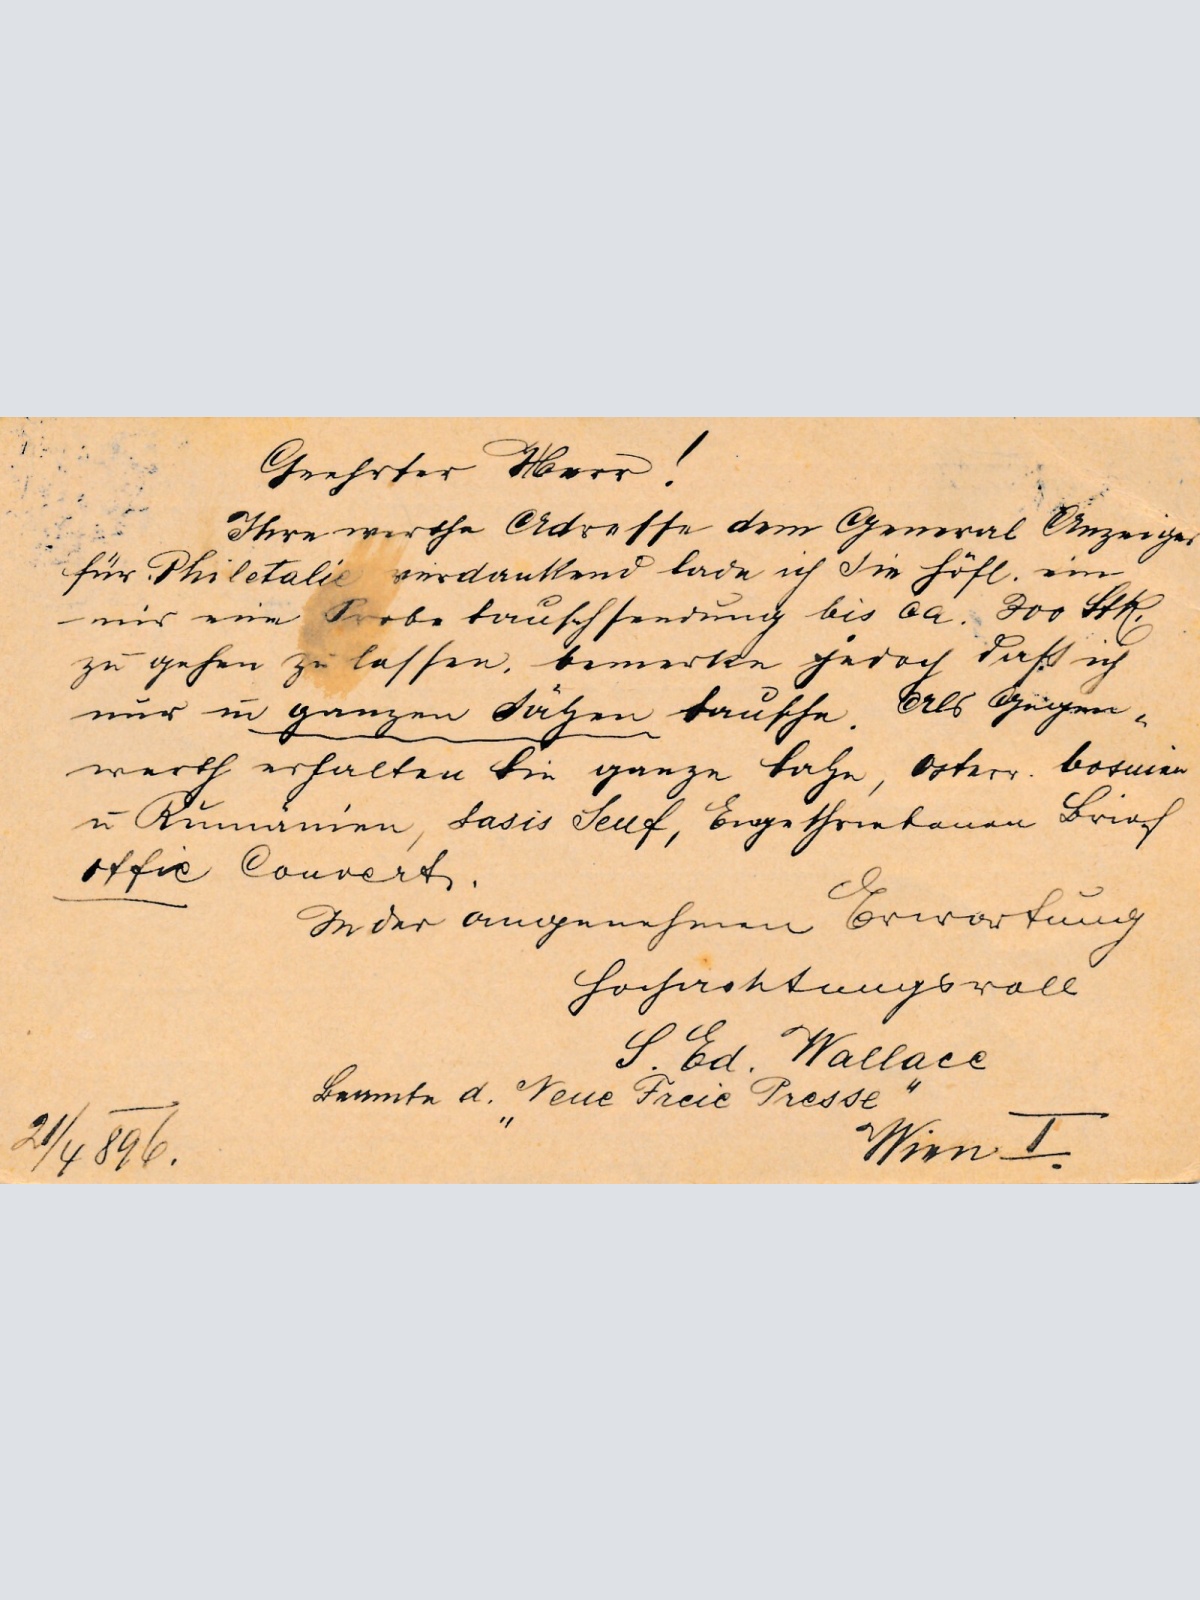 Geehrter Herr!
Ihre werthe Adresse dem General Anzeiger
für Philetalie verdankend lade ich Sie höfl. ein
mir eine Probe tauschsendung bis ca. 300 Stk.
zu gehen zu lassen. bemerke jedoch daß ich
nur in ganzen Sätzen tausche. Als Gegen„
werth erhalten Sie ganze Sätze, österr. bosnien
u Rumänien, basis Senf, Eingeschriebenen Brief
offic Couvert.
In der angenehmen Erwartung
Hochachtungsvoll
S. Ed. Wallace
Beamte d. „Neue Freie Presse"
Wien I.
21/4 896.